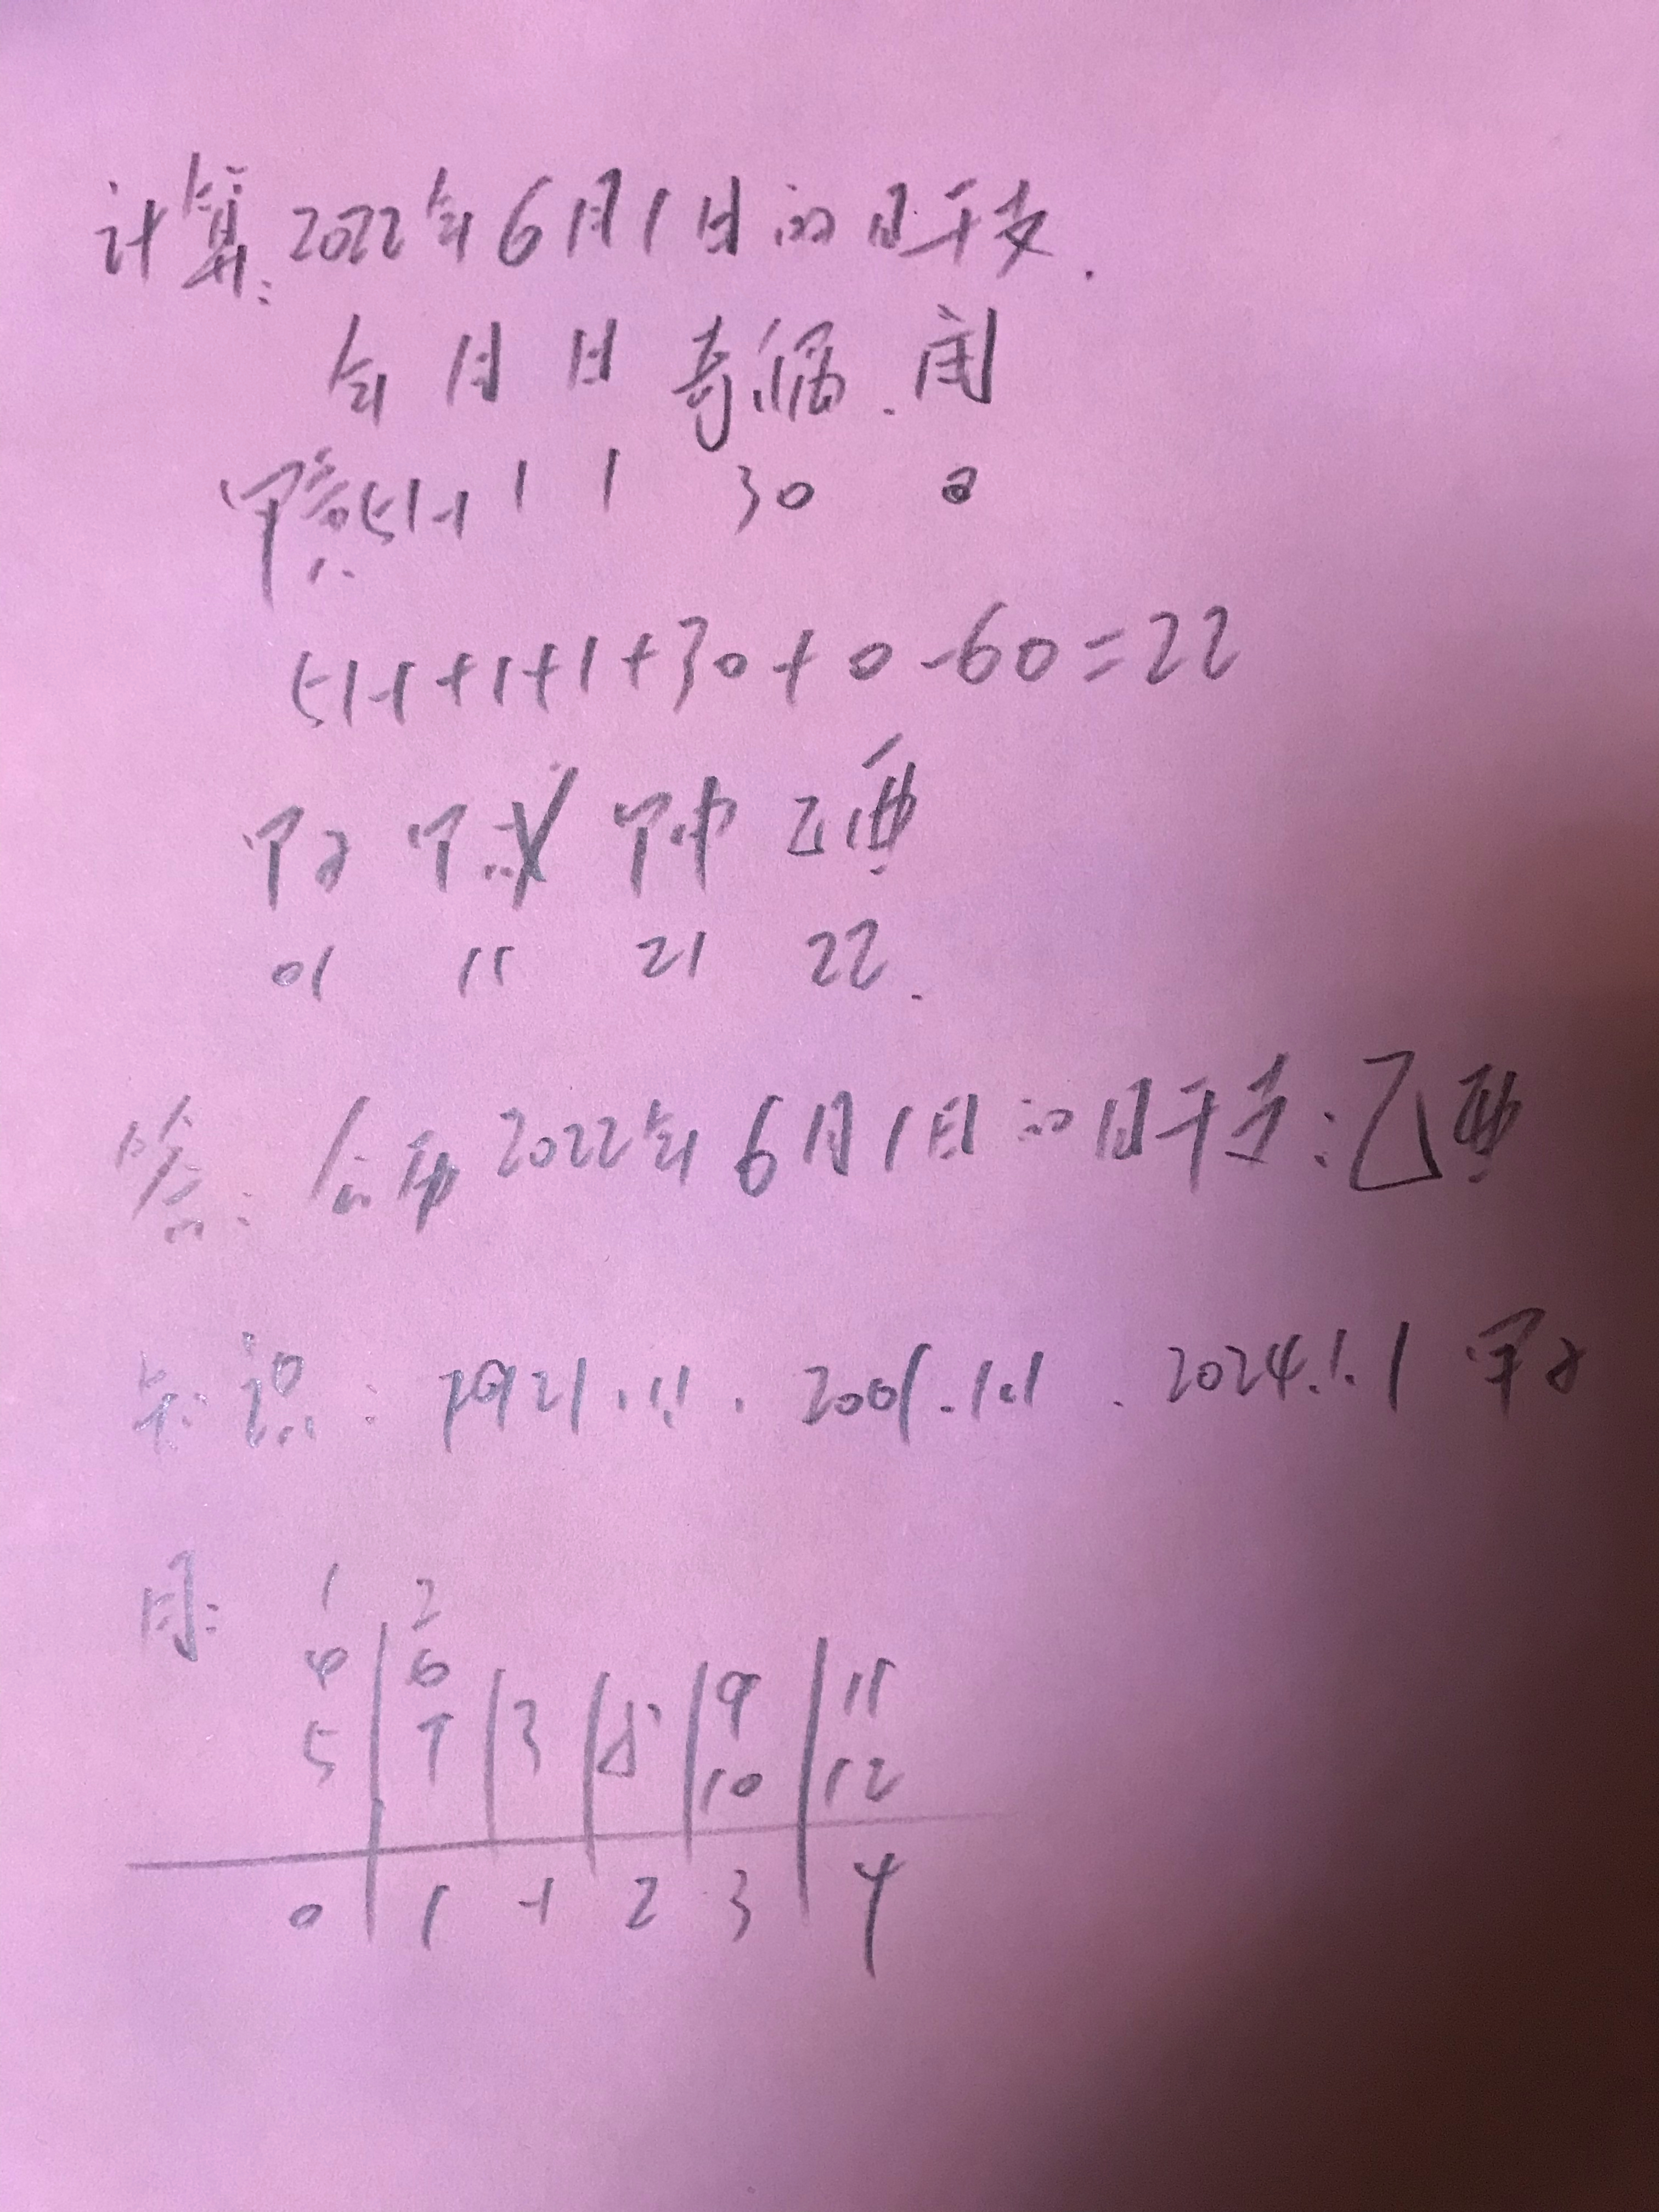 计算:2022年6月1日的日干支.
年 月 日 奇偶.闰
甲寅51-1 1 1 30 0
51-1+1+1+30+0-60=22
甲子 甲戌 甲申 乙酉
01 11 21 22.
答:公历2022年6月1日的日干支:乙酉
知识:1921.1.1.2001.1.1.2024.1.1 甲子
月: 1 2
4 6 9 11
5 7 3 8 10 12
0 1 -1 2 3 4